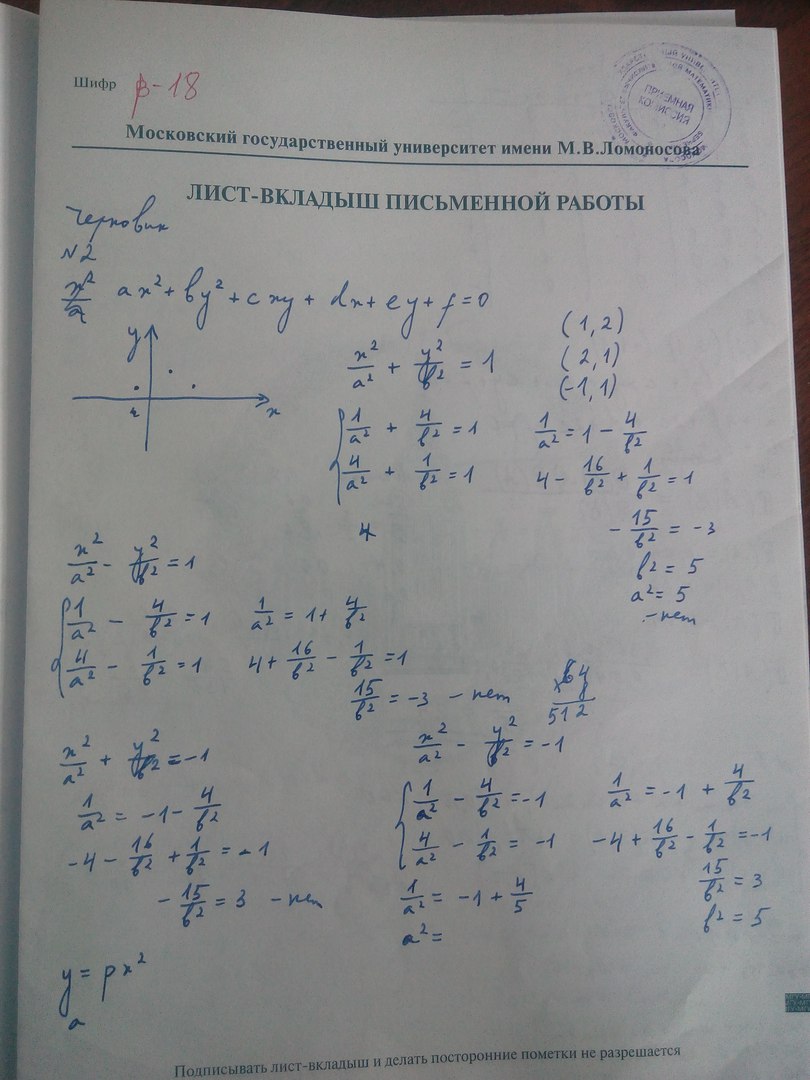 Шифр β-18
ПРИЕМНАЯ
КОМИССИЯ
Московский государственный университет имени М.В.Ломоносова
ЛИСТ-ВКЛАДЫШ ПИСЬМЕННОЙ РАБОТЫ
Черновик
№2
ax² + by² + cxy + dx + ey + f = 0
y
x
x²/a² + y²/b² = 1
(1,2)
(2,1)
(-1,1)
1/a² + 4/b² = 1
4/a² + 1/b² = 1
1/a² = 1 - 4/b²
4 - 16/b² + 1/b² = 1
- 15/b² = -3
b² = 5
a² = 5
- нет
4
x²/a² - y²/b² = 1
1/a² - 4/b² = 1
4/a² - 1/b² = 1
1/a² = 1 + 4/b²
4 + 16/b² - 1/b² = 1
15/b² = -3 - нет
512
x²/a² + y²/b² = -1
1/a² = -1 - 4/b²
-4 - 16/b² + 1/b² = -1
- 15/b² = 3 - нет
x²/a² - y²/b² = -1
1/a² - 4/b² = -1
4/a² - 1/b² = -1
1/a² = -1 + 4/b²
-4 + 16/b² - 1/b² = -1
15/b² = 3
b² = 5
1/a² = -1 + 4/5
a² =
y = px²
a
Подписывать лист-вкладыш и делать посторонние пометки не разрешается